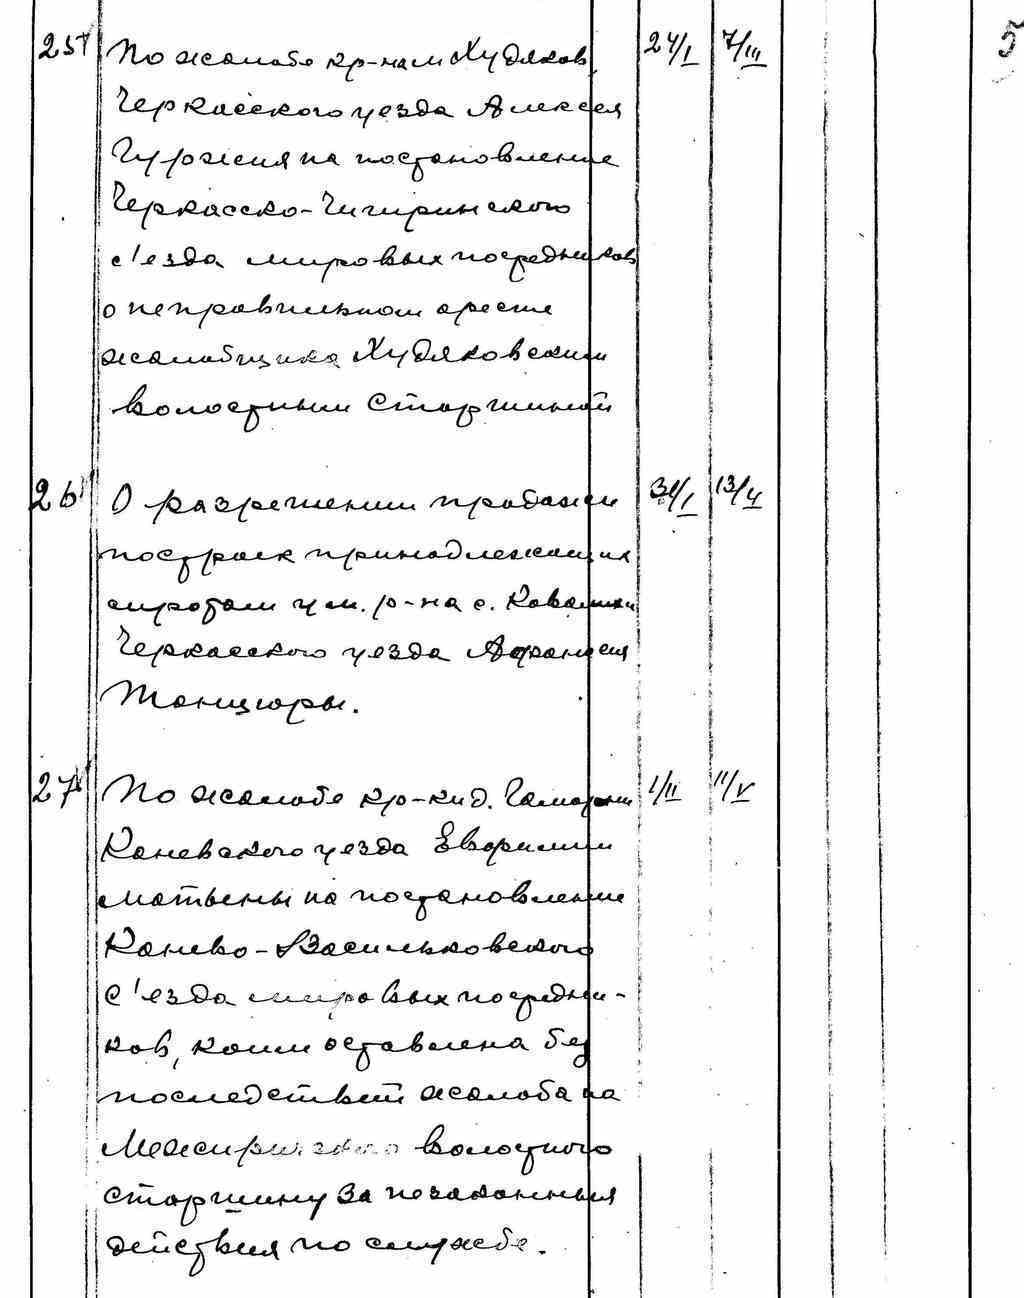 25 По жалобе кр-на м. Худяков 24/I 7/III 5
Черкасского уезда Алексея
Гуржия на постановление
Черкасско-Чигиринского
с'езда мировых посредников
о неправильном аресте
жалобщика Худяковским
волостным старшиной
26 О разрешении продажи 31/I 13/II
построек принадлежащих
сиротам ум. р-на с.
Черкасского уезда Афанасия
Танцюры.
27 По жалобе кр-ки д. 1/II 11/V
Каневского уезда Евфимии
на постановление
Канево-Васильковского
с'езда мировых посредни-
ков, коим оставлена без
последствий жалоба на
Межирического волостного
старшину за незаконныя
действия по службе.